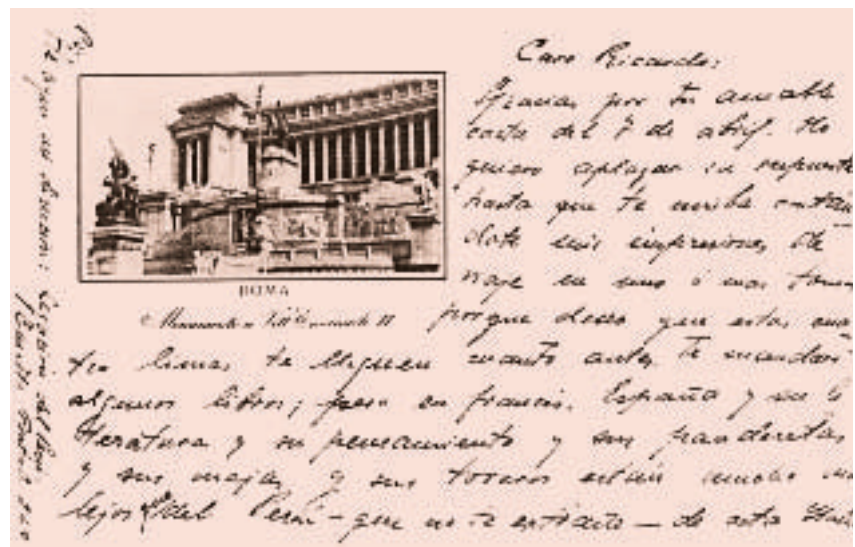 Caro Ricardo:
Gracias por tu amable
carta del 7 de abril. No
quiero aplazar su respuesta
hasta que te escriba contán
dote mis impresiones de
viaje en uno o mas tomos
porque deseo que estas cua
ROMA
Monumento a Vittorio Emanuele II
tro lineas te lleguen cuanto antes. Te mandaré
algunos libros; pero en francés. España y su li
teratura y su pensamiento y sus panderetas
y sus majas y sus toreros están mucho mas
lejos del Perú - que no te extrañe - de esta